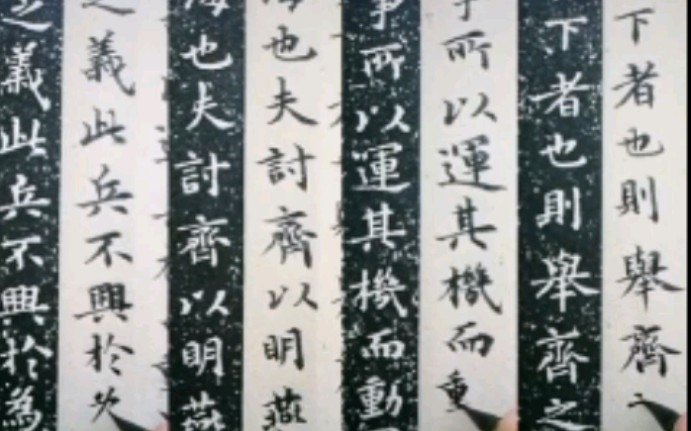 下者也則舉齊
下者也則舉齊之
所以運其機而重
事所以運其機而動
海也夫討齊以明燕
海也夫討齊以明燕
之義此兵不興於
之義此兵不興於為